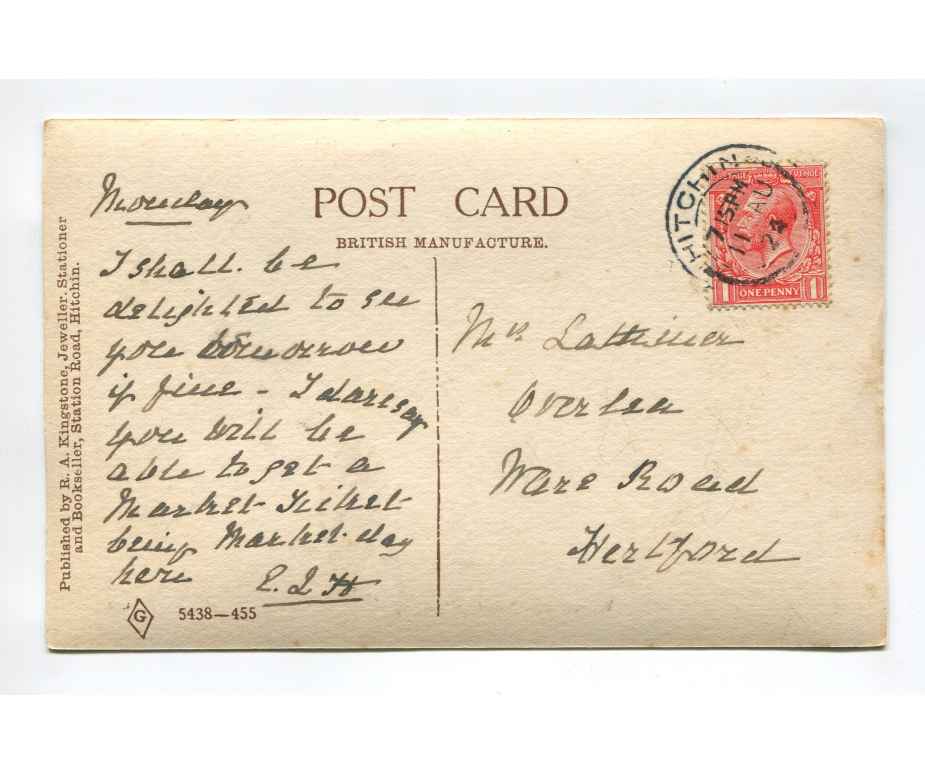 POST CARD
BRITISH MANUFACTURE.
Published by R. A. Kingstone, Jeweller. Stationer
and Bookseller, Station Road, Hitchin.
Monday
I shall be
delighted to see
you tomorrow
if fine - I daresay
you will be
able to get a
Market Ticket
being Market-day
here E. J H
G 5438—455
HITCHIN
7.15PM
11 AU
24
ONE PENNY
1 1
Mrs Lattimer
Oversea
Ware Road
Hertford